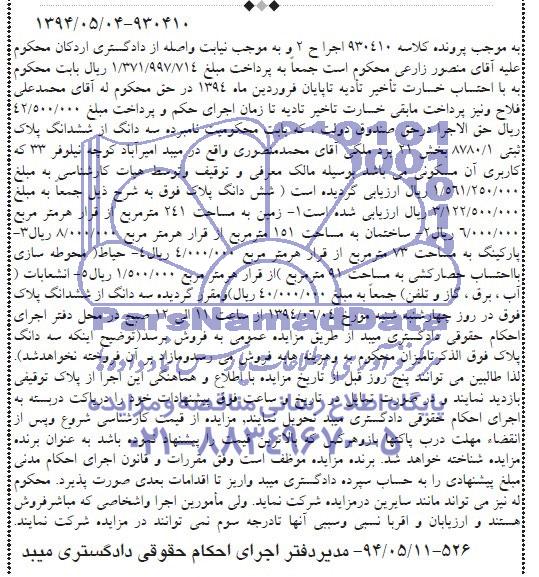 ۱۳۹۴/۰۵/۰۴-۹۳۰۴۱۰
به موجب پرونده کلاسه ۹۳۰۴۱۰ اجرا ح ۲ و به موجب نیابت واصله از دادگستری اردکان محکوم
علیه آقای منصور زارعی محکوم است جمعاً به پرداخت مبلغ ۱/۳۷۱/۹۹۷/۷۱۴ ریال بابت محکوم
به با احتساب خسارت تأخیر تأدیه تاپایان فروردین ماه ۱۳۹۴ در حق محکوم له آقای محمدعلی
فلاح ونیز پرداخت مابقی خسارت تاخیر تادیه تا زمان اجرای حکم و پرداخت مبلغ ۴۲/۵۰۰/۰۰۰
ریال حق الاجرا درحق صندوق دولت که بابت محکومیت نامبرده سه دانگ از ششدانگ پلاک
ثبتی ۸۷۸۰/۱ بخش ۲۱ یزد ملکی آقای محمدمنصوری واقع در میبد امیرآباد کوچه نیلوفر ۳۳ که
کاربری آن مسکونی می باشد بوسیله مالک معرفی و توقیف وتوسط هیات کارشناسی به مبلغ
۱/۵۶۱/۲۵۰/۰۰۰ ریال ارزیابی گردیده است ( شش دانگ پلاک فوق به شرح ذیل جمعاً به مبلغ
۳/۱۲۲/۵۰۰/۰۰۰ ریال ارزیابی شده است۱- زمین به مساحت ۲۴۱ مترمربع از قرار هرمتر مربع
۶/۰۰۰/۰۰۰ ریال۲- ساختمان به مساحت ۱۵۱ مترمربع از قرار هرمتر مربع ۸/۰۰۰/۰۰۰ ریال۳-
پارکینگ به مساحت ۷۳ مترمربع از قرار هرمتر مربع ۴/۰۰۰/۰۰۰ ریال۴- حیاط( محوطه سازی
بااحتساب حصارکشی به مساحت ۹۱ مترمربع )از قرار هرمتر مربع ۱/۵۰۰/۰۰۰ ریال۵- انشعابات (
آب ، برق ، گاز و تلفن) جمعاً به مبلغ ۴۰/۰۰۰/۰۰۰ ریال)ومقرر گردیده سه دانگ از ششدانگ پلاک
فوق در روز چهارشنبه مورخ ۱۳۹۴/۰۶/۰۴ از ساعت ۱۱ الی ۱۲ صبح در محل دفتر اجرای
احکام حقوقی دادگستری میبد از طریق مزایده عمومی به فروش برسد(توضیح اینکه سه دانگ
پلاک فوق الذکر تامیزان محکوم به وهزینه هابه فروش می رسد ومازاد بر آن فروخته نخواهدشد).
لذا طالبین می توانند پنج روز قبل از تاریخ مزایده بااطلاع و هماهنگی این اجرا از پلاک توقیفی
بازدید نمایند و در صورت تمایل در تاریخ و ساعت فوق پیشنهادات خود را درپاکت دربسته به
اجرای احکام حقوقی دادگستری میبد تحویل نمایند. مزایده از قیمت کارشناسی شروع وپس از
انقضاء مهلت درب پاکتها بازوهرکس که بالاترین قیمت را پیشنهاد نموده باشد به عنوان برنده
مزایده شناخته خواهد شد. برنده مزایده موظف است وفق مقررات و قانون اجرای احکام مدنی
مبلغ پیشنهادی را به حساب سپرده دادگستری میبد واریز تا اقدامات بعدی صورت پذیرد. محکوم
له نیز می تواند مانند سایرین درمزایده شرکت نماید. ولی مأمورین اجرا واشخاصی که مباشرفروش
هستند و ارزیابان و اقربا نسبی وسببی آنها تادرجه سوم نمی توانند در مزایده شرکت نمایند.
۹۴/۰۵/۱۱-۵۲۶- مدیردفتر اجرای احکام حقوقی دادگستری میبد
ParsNamadData
پایگاه اطلاع رسانی مناقصه و مزایده
۰۲۱-۸۸۳۴۹۶۷۰-۵